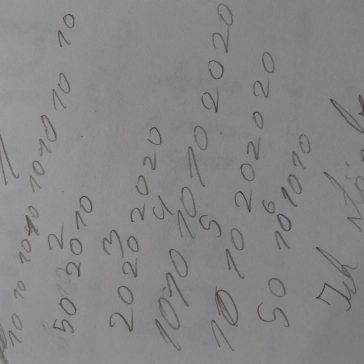 1
10 10 10 10 10 10 10 10
2
50 20 10
3
20 20 20 20
4
10 10 10 10 20 20
5
10 10 20 20 20
6
50 10 10 10
Ich